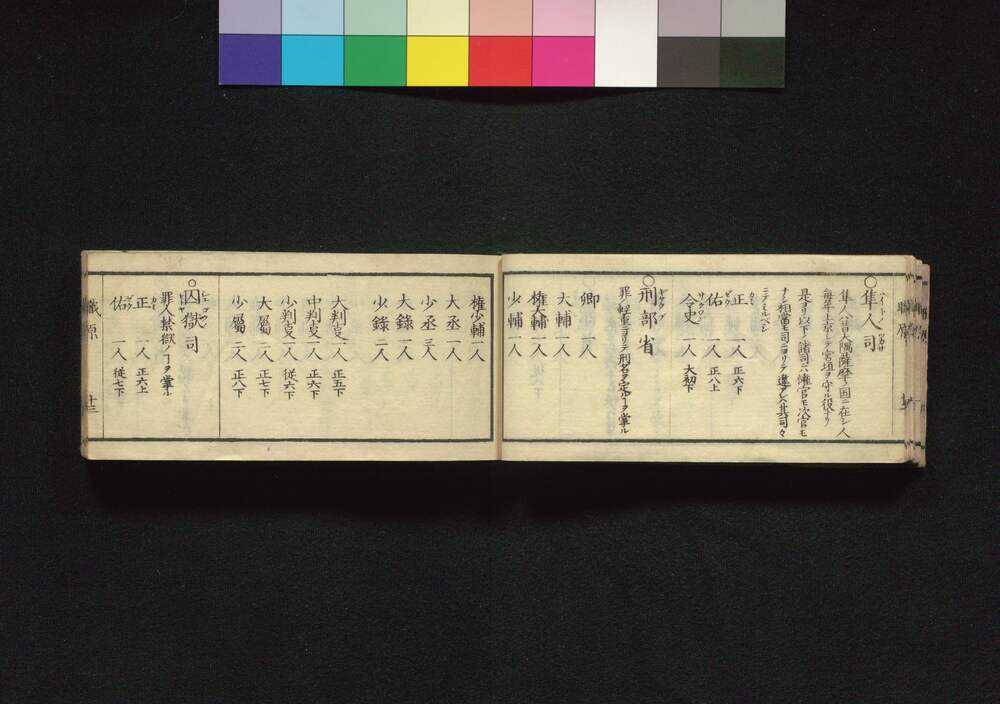 ○隼人司
隼人ハ昔大隅薩摩ノ国ニ在シ人
毎年上京シテ宮垣ヲ守ル役ナリ
是ヨリ以下ノ諸司ハ権官モ次官モ
ナシ相當モ司ニヨリテ違アレバ其司々
ニテミルベシ
正 一人 正六下
佑 一人 正八上
令史 一人 大初下
○刑部省
罪ノ軽重ニヨリテ刑名ヲ定ル丁ヲ掌ル
卿 一人
大輔 一人
権大輔 一人
少輔 一人
権少輔 一人
大丞 一人
少丞 二人
大録 一人
少録 二人
大判事 一人 正五下
中判事 一人 正六下
少判事 一人 従六下
大属 一人 正七下
少属 二人 正八下
○囚獄司
罪人禁獄ノ丁ヲ掌ル
正 一人 正六上
佑 一人 従七下
職原 十三